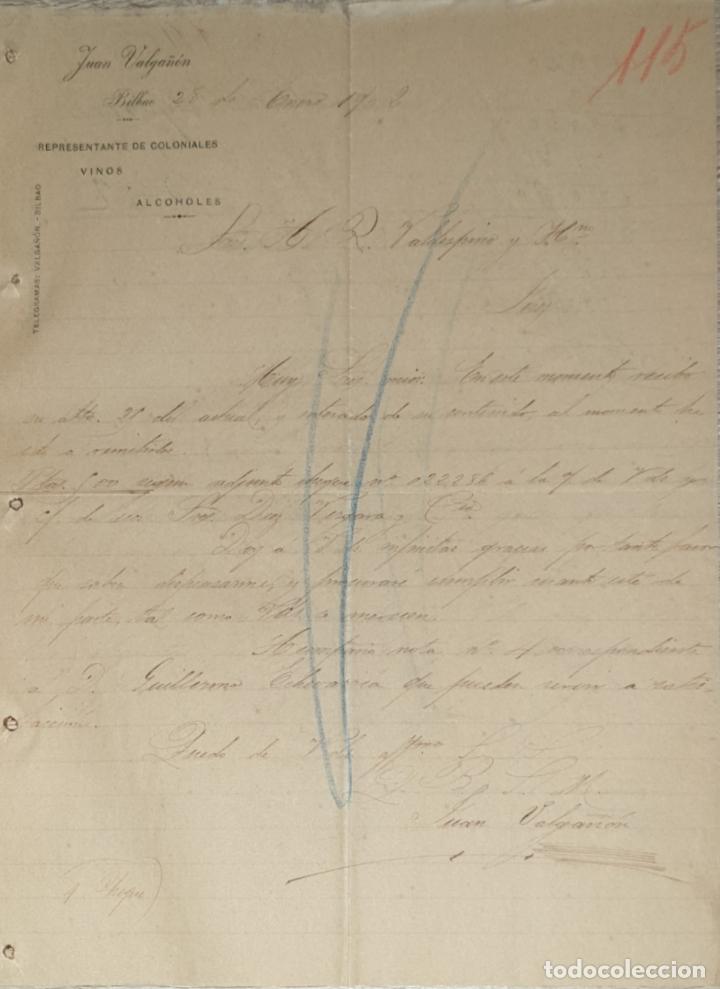 115
Juan Valgañón
Bilbao 28 de Enero 1902
REPRESENTANTE DE COLONIALES
VINOS
ALCOHOLES
TELEGRAMAS: VALGAÑÓN. - BILBAO
Sres. A. R. Valdespino y Hno
Muy Sres. mios: En este momento recibo
su atta. 21 del actual, y enterado de su contenido, al momento
a remitirles
Ptas. 500 según adjunto cheque nº 022286 á la de Vds y
de los Sres. Diaz Vergara y Cia
Doy a Vds infinitas gracias por tanto favor
que saben dispensarme, y procuraré cumplir cuanto esté de
mi parte, tal como Vds se merecen.
Acompaño nota nº 4 correspondiente
a D. Guillermo Echevarría que pueden servir a satis-
facción.
Quedo de Vds affmo
Q. B. S. M.
Juan Valgañón
1 Cheque
todocoleccion.net